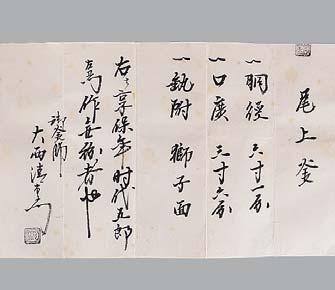 尾上釜
一胴径 六寸一分
一口広 三寸六分
一鈕附 獅子面
右ハ享保年時代五郎
作無紛者也
御釜師
大西清右衛門